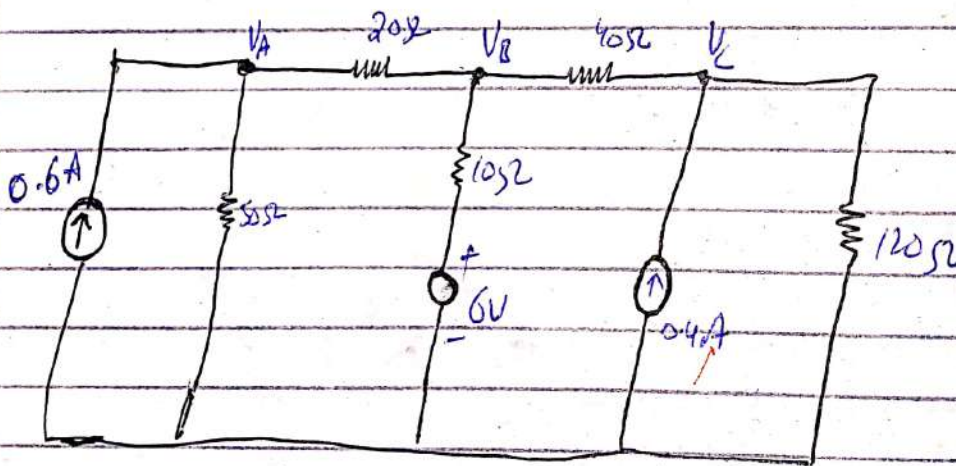 V_A 20Ω V_B 40Ω V_C
0.6A
50Ω
10Ω
+
6V
-
0.4A
120Ω